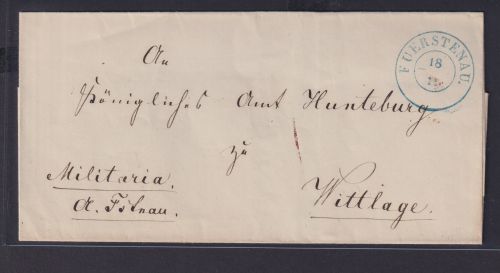 An
Königliches Amt Hunteburg
zu
Wittlage.
Militaria.
A. Fstnau.
FUERSTENAU.
18